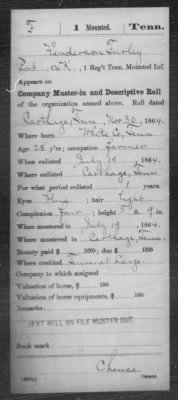 F 1 Mounted. Tenn.
Henderson Turley
Pvt, Co. K, 1 Reg't Tenn. Mounted Inf.
Appears on
Company Muster-in and Descriptive Roll
of the organization named above. Roll dated
Carthage, Tenn. Nov. 30, 1864.
Where born White Co, Tenn
Age 28 y'rs; occupation Farmer
When enlisted July 19, 1864.
Where enlisted Carthage, Tenn
For what period enlisted 1 years.
Eyes ; hair Light
Complexion Fair; height 5 ft. 9 in.
When mustered in July 19, 1864.
Where mustered in Carthage, Tenn.
Bounty paid $ 100; due $ 100
Where credited Tenn at Large
Company to which assigned
Valuation of horse, $ 100
Valuation of horse equipments, $ 100
Remarks:
NEXT ROLL ON FILE MUSTER OUT.
Book mark:
Chance
Copyist.